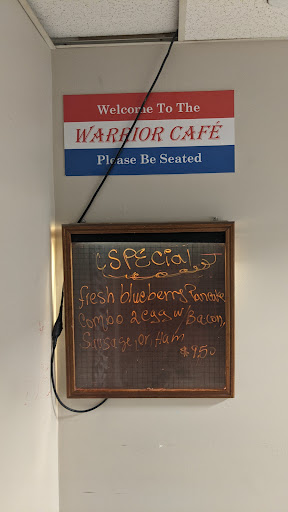 Welcome To The
WARRIOR CAFÉ
Please Be Seated
SPECIAL
fresh blueberry Pancake
Combo 2 egg w/ Bacon,
Sausage, or Ham
$9.50